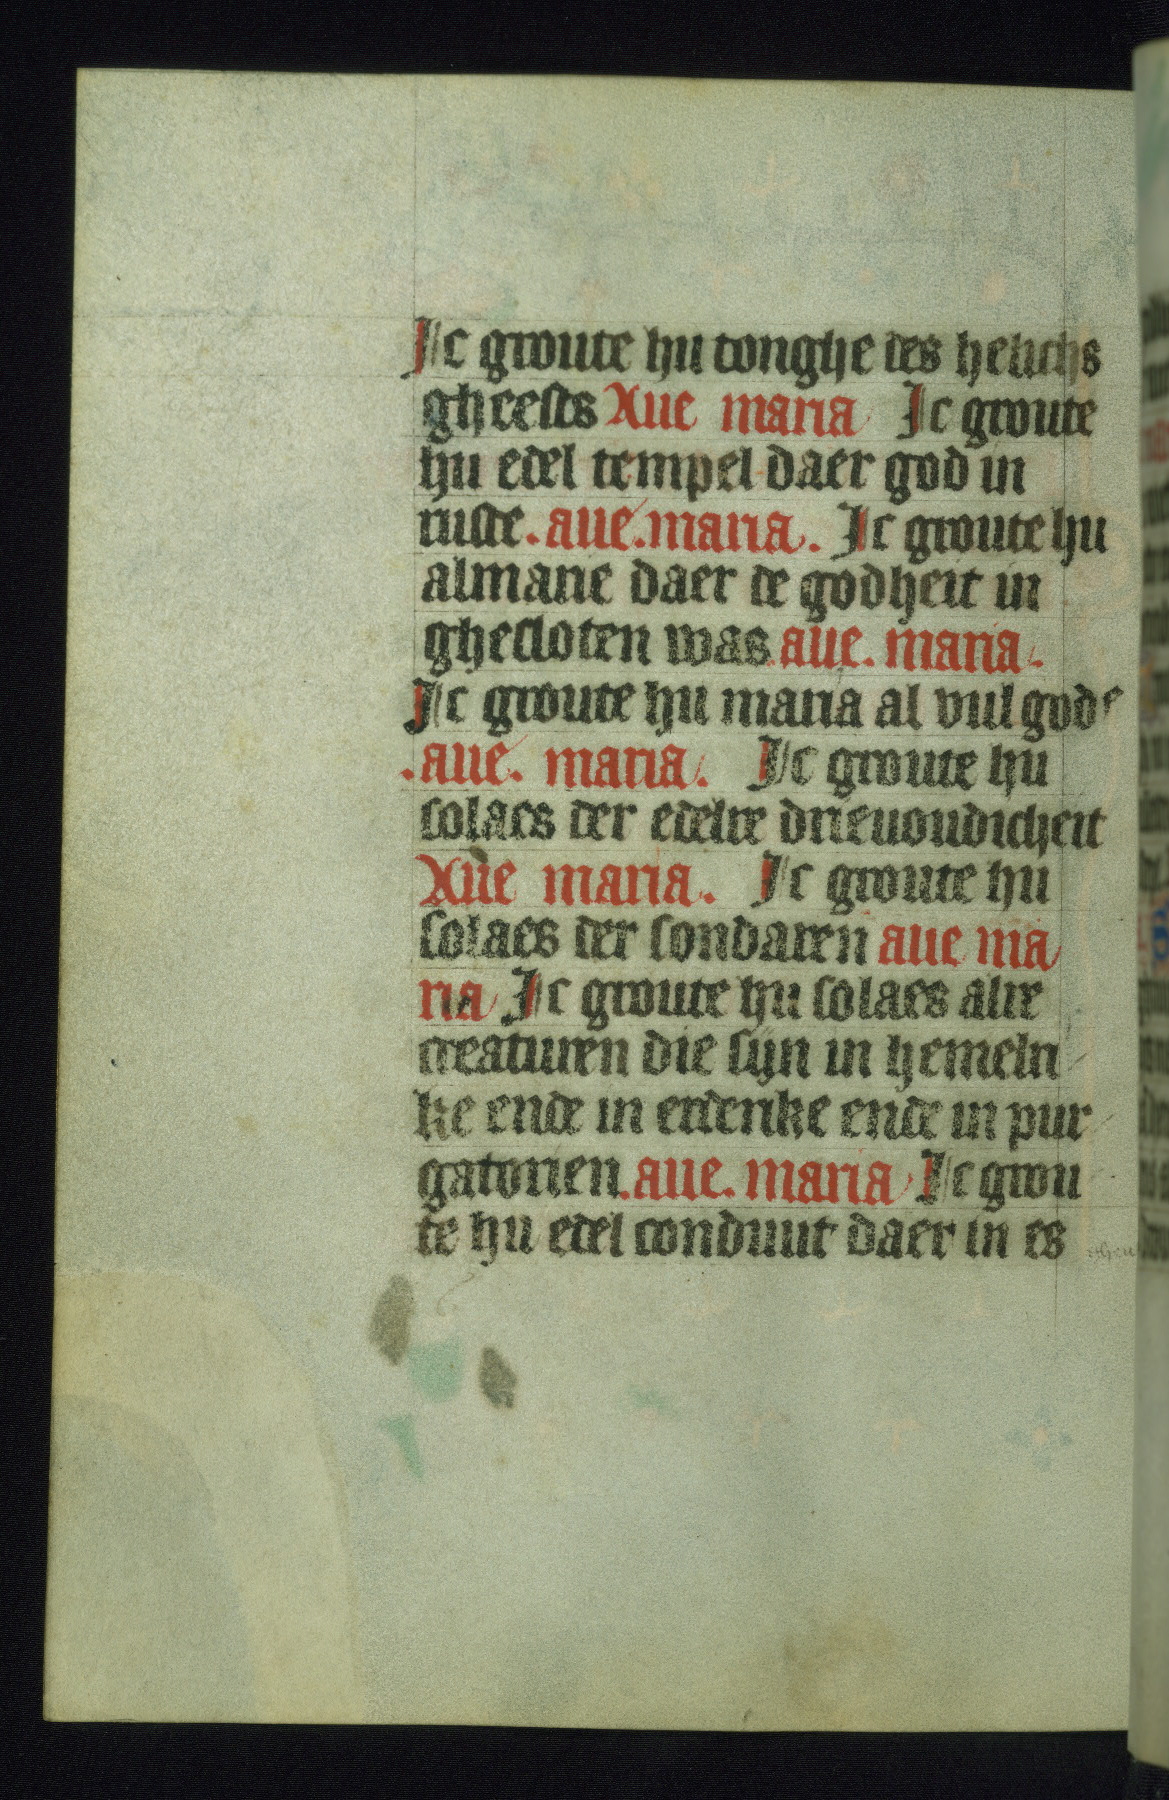 Ic groute hu tonghe des helichs
gheestes Aue maria Ic groute
hu edel tempel daer god in
ruste. aue. maria. Ic groute hu
almarie daer de godheit in
ghesloten was. aue. maria.
Ic groute hu maria al vul gods
.aue. maria. Ic groute hu
solaes der edelre drieuoudicheit
Aue maria. Ic groute hu
solaes der sondaren aue ma
ria Ic groute hu solaes alre
creaturen die sijn in hemelri
ke ende in erderike ende in pur
gatorien. aue. maria Ic grou
te hu edel conduut daer in es